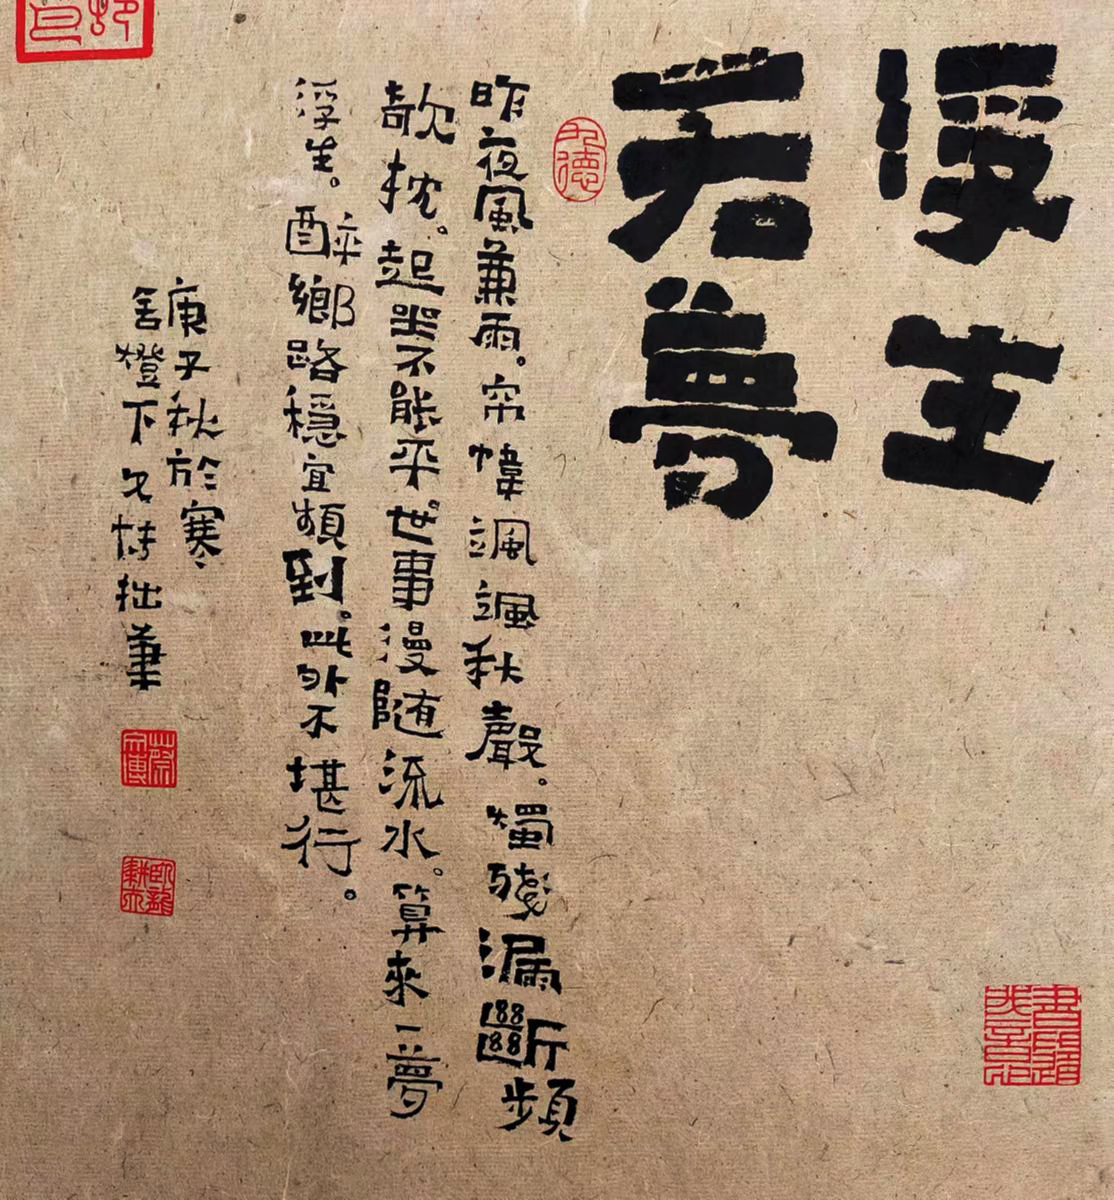 浮生
若夢
昨夜風兼雨。帘幃颯颯秋聲。燭殘漏斷頻
欹枕。起坐不能平。世事漫随流水。算來一夢
浮生。醉鄉路穩宜頻到。此外不堪行。
庚子秋於寒
舍燈下久持拙筆